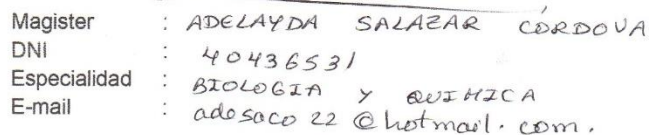 Magister : ADELAYDA SALAZAR CÓRDOVA
DNI : 40436531
Especialidad : BIOLOGIA Y QUIMICA
E-mail : adesaco22@hotmail.com.